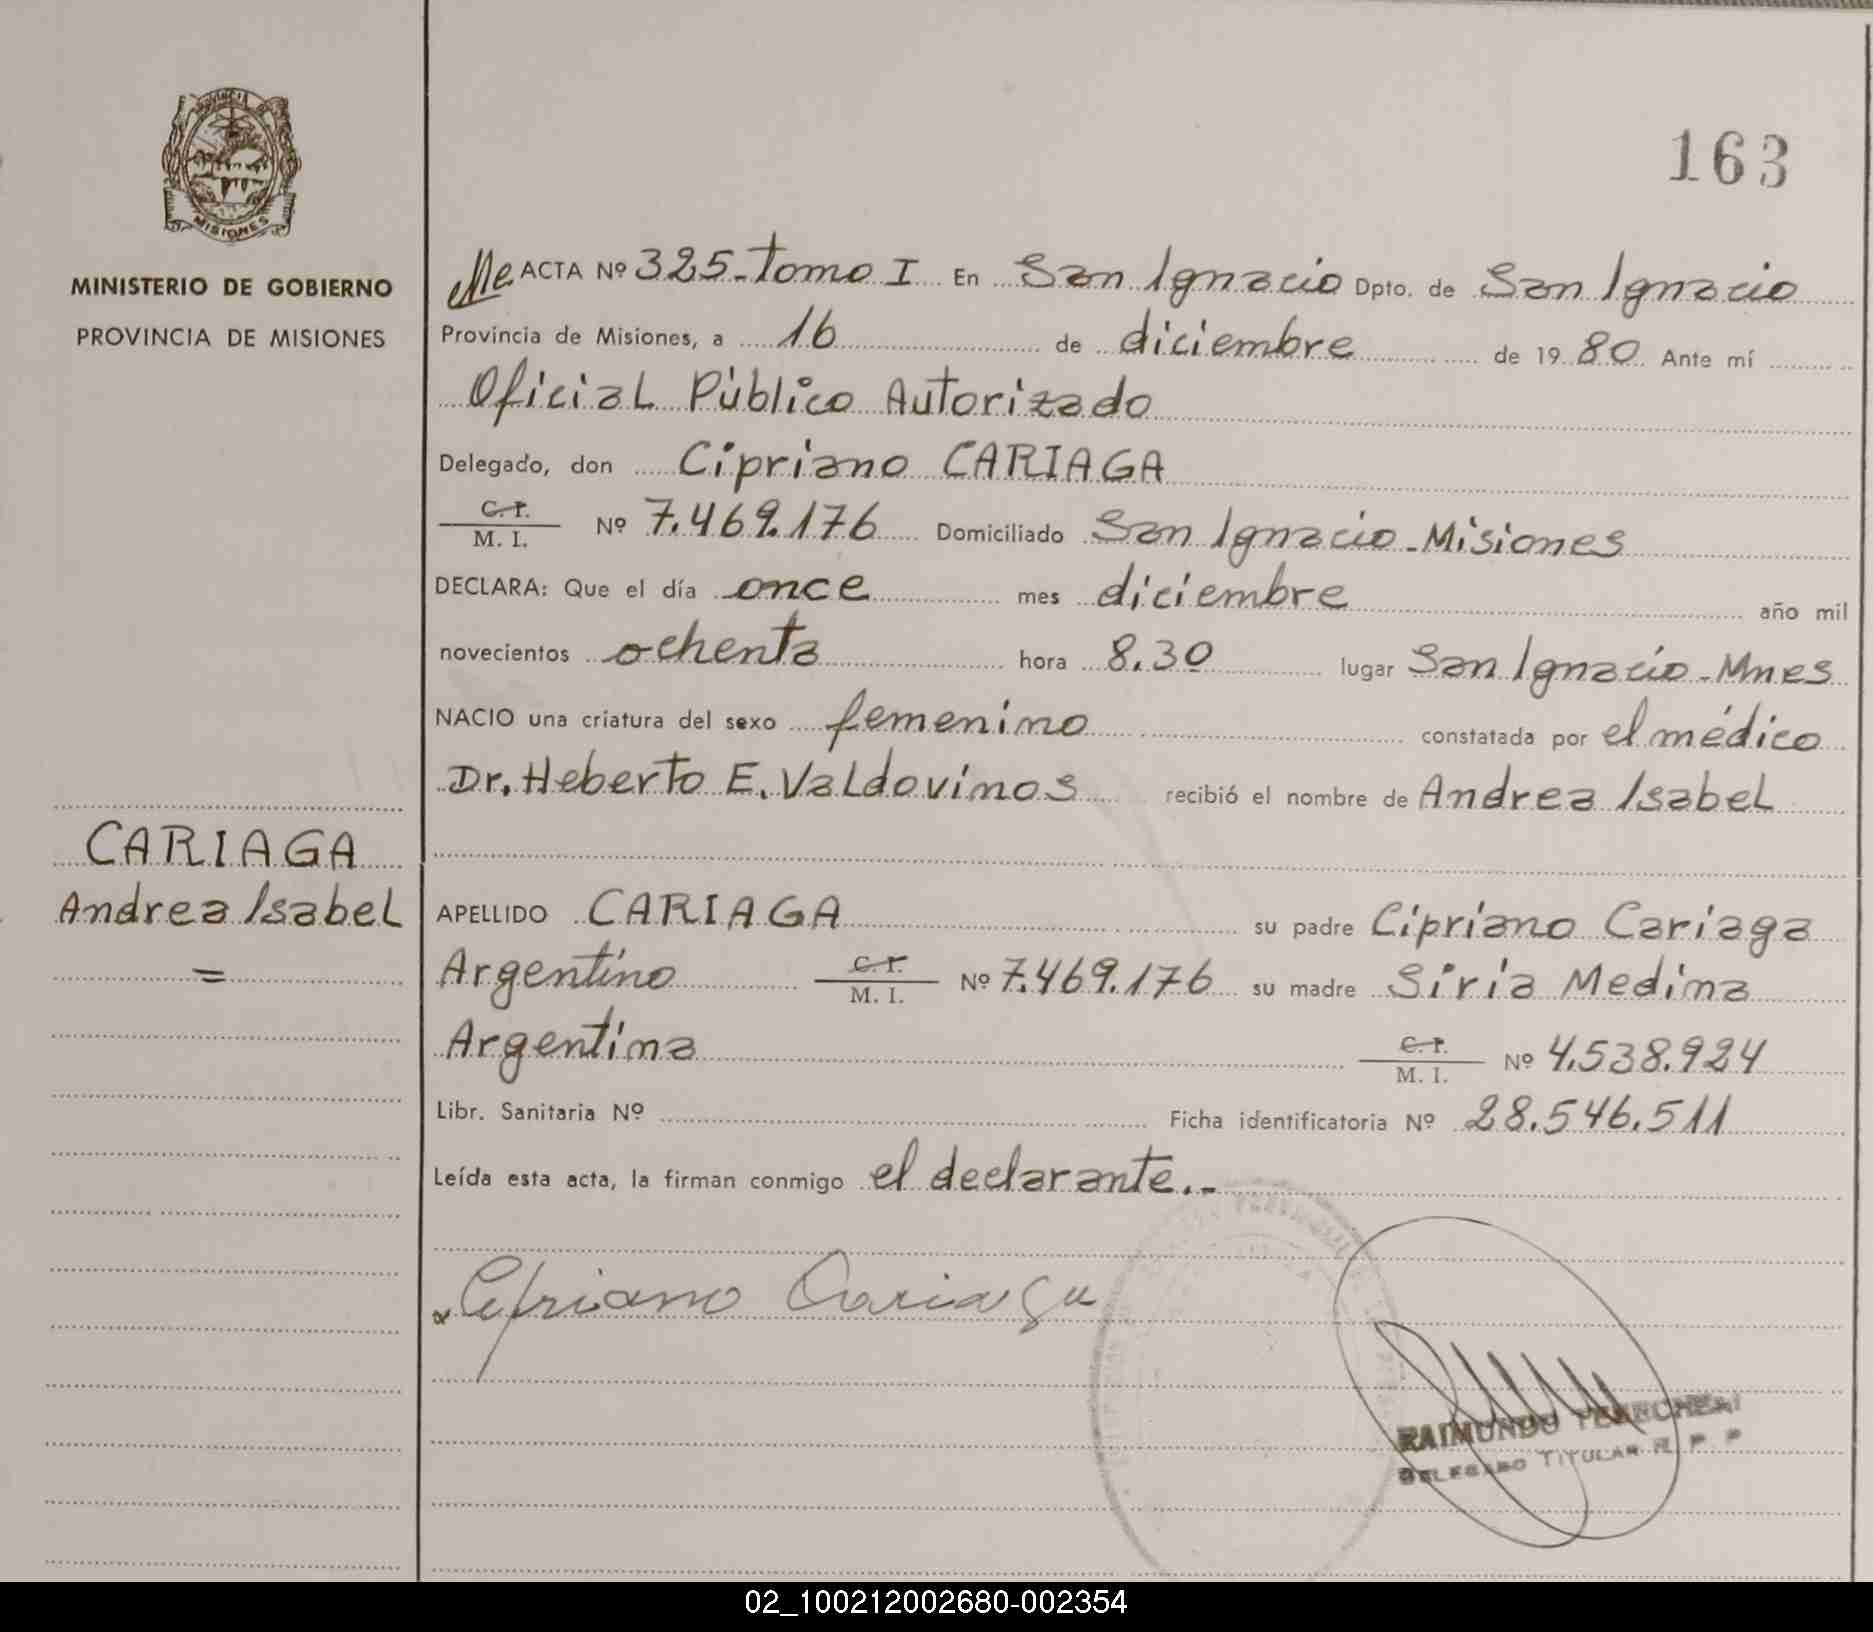 PROVINCIA
MISIONES
MINISTERIO DE GOBIERNO
PROVINCIA DE MISIONES
CARIAGA
Andrea Isabel
=
163
ACTA Nº 325-tomo I En San Ignacio Dpto. de San Ignacio
Provincia de Misiones, a 16 de diciembre de 19 80 Ante mí
Oficial Público Autorizado
Delegado, don Cipriano CARIAGA
C. I.
M. I. Nº 7.469.176 Domiciliado San Ignacio-Misiones
DECLARA: Que el día once mes diciembre año mil
novecientos ochenta hora 8.30 lugar San Ignacio-Mnes
NACIO una criatura del sexo femenino constatada por el médico
Dr. Heberto E. Valdovinos recibió el nombre de Andrea Isabel
APELLIDO CARIAGA su padre Cipriano Cariaga
Argentino C. I. M. I. Nº 7.469.176 su madre Siria Medina
Argentina C. I. M. I. Nº 4.538.924
Libr. Sanitaria Nº Ficha identificatoria Nº 28.546.511
Leída esta acta, la firman conmigo el declarante.-
Cipriano Cariaga
RAIMUNDO
DELEGADO TITULAR R. P. P
02_100212002680-002354